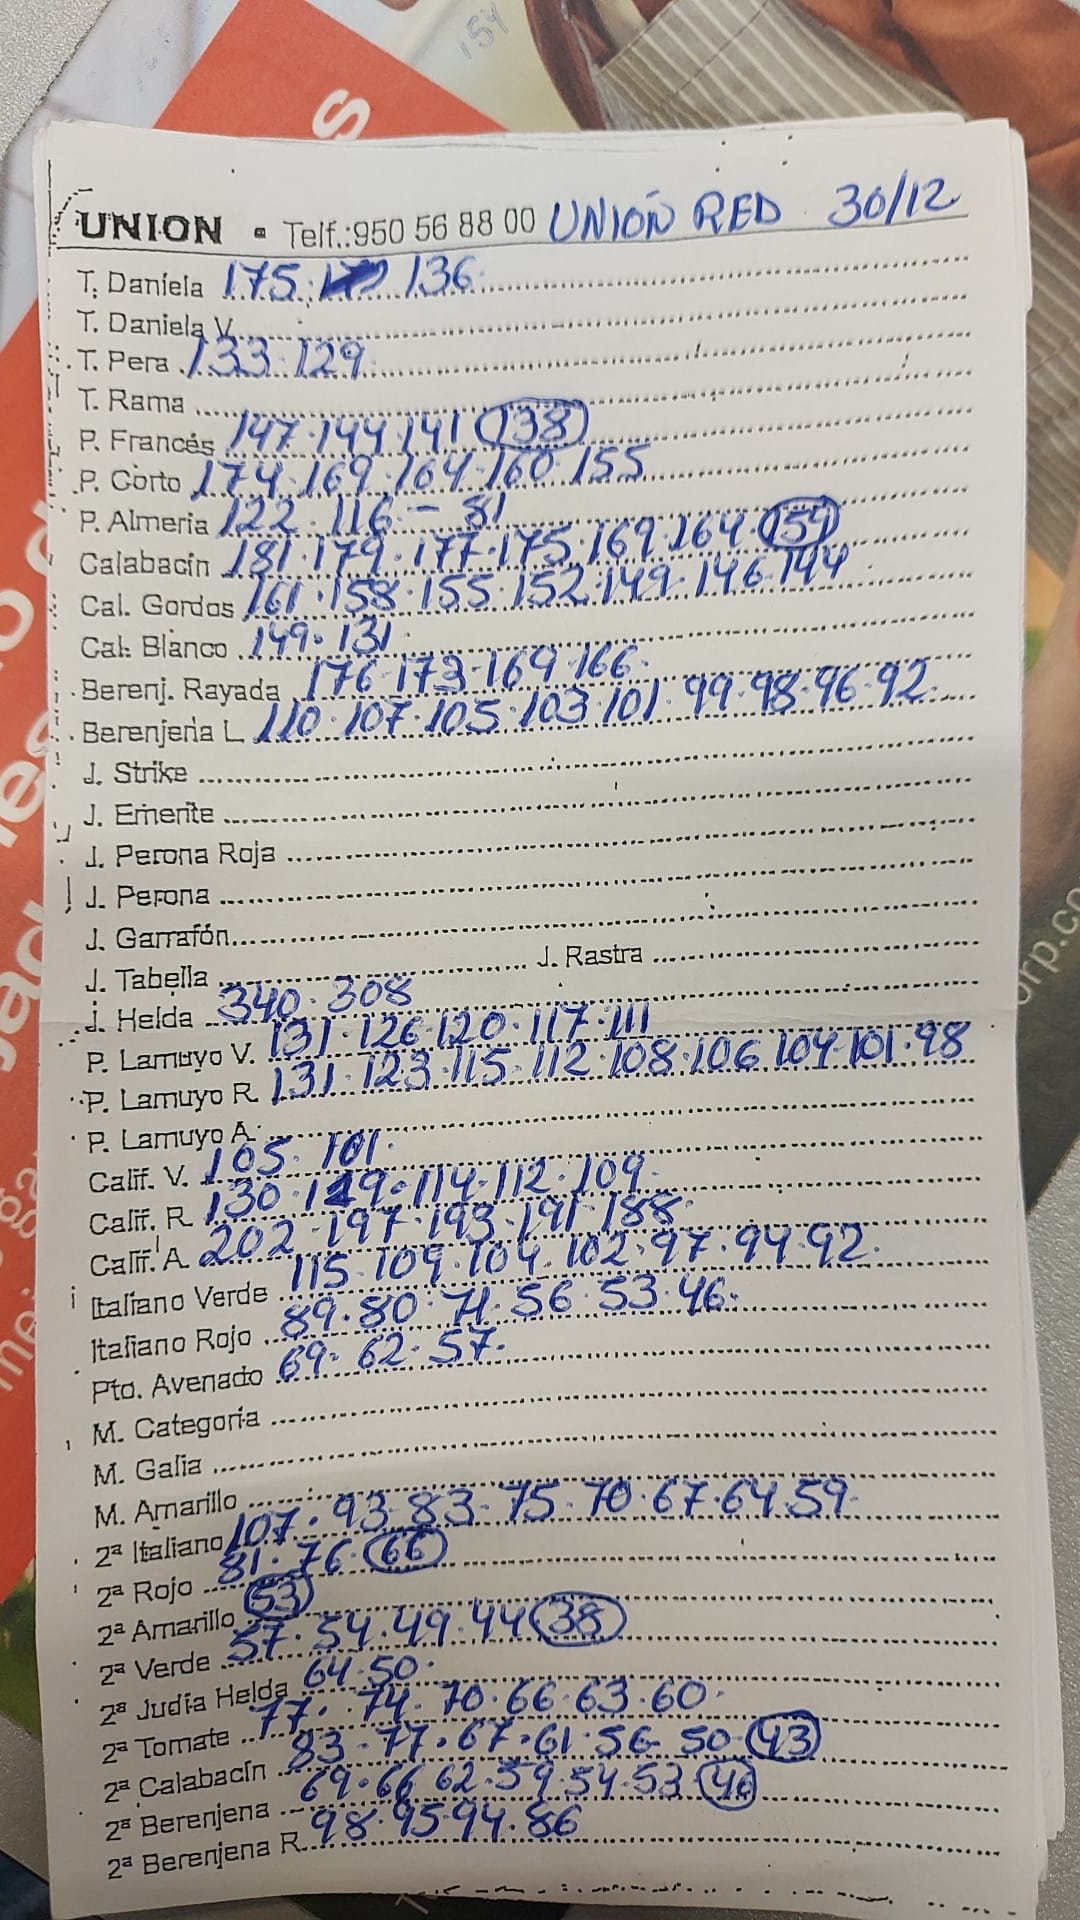 UNION - Telf.:950 56 88 00 UNION RED 30/12
T. Daniela 175 136
T. Daniela V.
T. Pera 133 129
T. Rama
P. Francés 147 144 141 138
P. Corto 174 169 164 160 155
P. Almeria 122 116 - 81
Calabacín 181 179 177 175 169 164 159
Cal. Gordos 161 158 155 152 149 146 144
Cal. Blanco 149 131
Berenj. Rayada 176 173 169 166
Berenjena L 110 107 105 103 101 99 98 96 92
J. Strike
J. Emerite
J. Perona Roja
J. Perona
J. Garrafón
J. Tabella J. Rastra
J. Helda 340 308
P. Lamuyo V. 131 126 120 117 111
P. Lamuyo R. 131 123 115 112 108 106 104 101 98
P. Lamuyo A.
Calif. V. 105 101
Calif. R. 130 114 112 109
Calif. A. 202 197 193 191 188
Italiano Verde 115 109 104 102 97 94 92
Italiano Rojo 89 80 71 56 53 46
Pto. Avenado 69 62 57
M. Categoria
M. Galia
M. Amarillo
2ª Italiano 107 93 83 75 70 67 64 59
2ª Rojo 81 76 66
2ª Amarillo 53
2ª Verde 57 54 49 44 38
2ª Judía Helda 64 50
2ª Tomate 77 74 70 66 63 60
2ª Calabacín 83 77 67 61 56 50 43
2ª Berenjena 69 66 62 59 54 53 46
2ª Berenjena R. 98 95 94 86